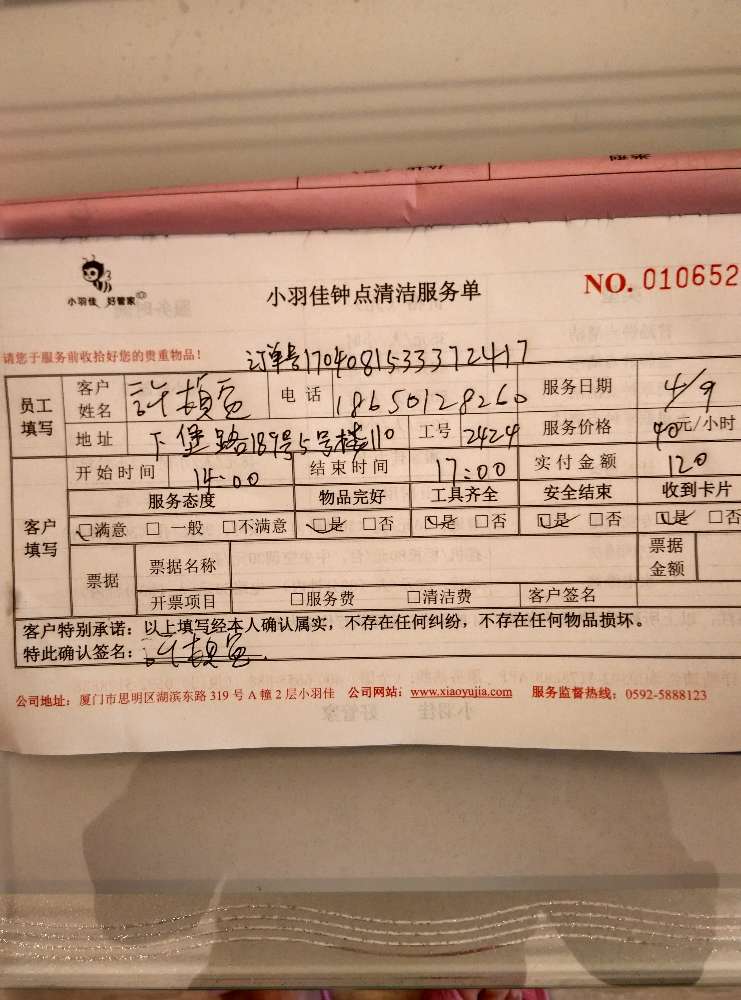 小羽佳 好管家
小羽佳钟点清洁服务单
NO. 010652
请您于服务前收拾好您的贵重物品!
订单号1704081533372417
员工填写 客户姓名 許 电话 18650128260 服务日期 4/9
地址 下堡路189号5号楼110 工号 2424 服务价格 40元/小时
客户填写 开始时间 14:00 结束时间 17:00 实付金额 120
服务态度 物品完好 工具齐全 安全结束 收到卡片
☑满意 □ 一般 □不满意 ☑是 □否 ☑是 □否 ☑是 □否 ☑是 □否
票据 票据名称 票据金额
开票项目 □服务费 □清洁费 客户签名
客户特别承诺:以上填写经本人确认属实,不存在任何纠纷,不存在任何物品损坏。
特此确认签名:許
公司地址:厦门市思明区湖滨东路 319 号 A 幢 2 层小羽佳 公司网站:www.xiaoyujia.com 服务监督热线:0592-5888123